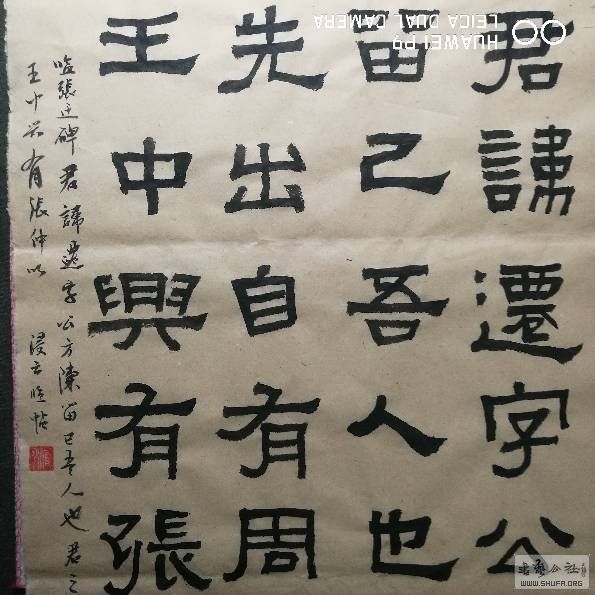 君諱遷字公
留己吾人也
先出自有周
王中興有張
临張迁碑君諱遷字公方陳留已吾人也君之
王中兴有張仲以
臨帖
HUAWEI P9
LEICA DUAL CAMERA
公社
WWW.SHUFA.ORG